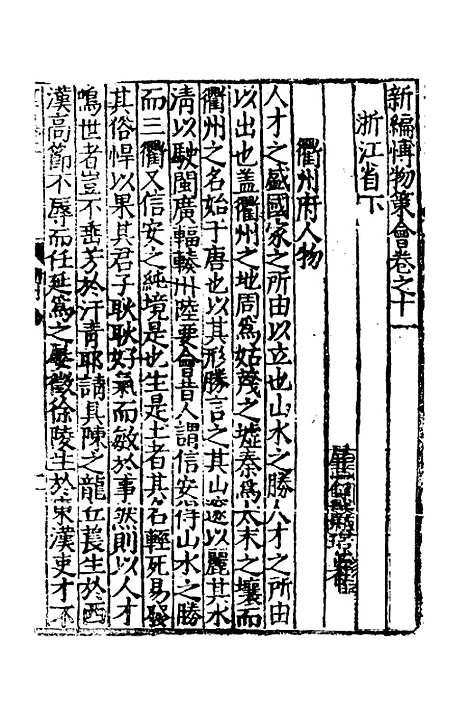 新編博物策會卷之十一
浙江省下
衢州府人物
人才之盛國家之所由以立也山水之勝人才之所由
以出也蓋衢州之地周為姑蔑之墟秦為太末之壤而
衢州之名始于唐也以其形勝言之其山邃以麗其水
清以駛閩廣輻輳州陸要會昔人謂信安侍山水之勝
而三衢又信安之純境是也生是土者其名輕死易發
其俗悍以果其君子耿耿好氣而敏於事狀則以人才
鳴世者豈不垂芳於汗青耶請具陳之龍丘萇生於西
漢高節不辱而任延為之屢徵徐陵生於東漢吏才不